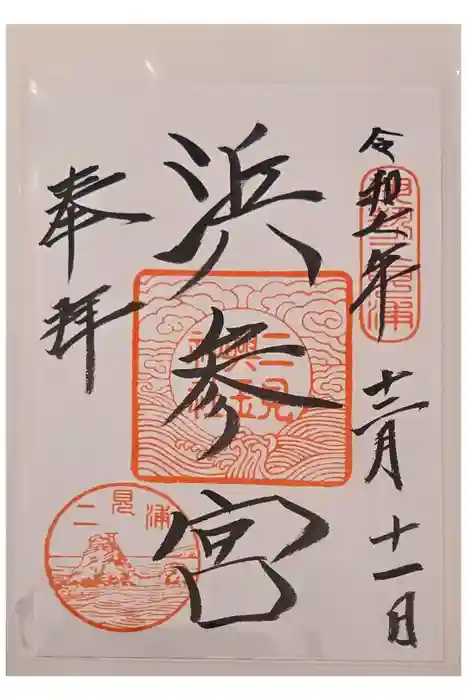 令和六年 十二月 十一日
伊勢二見浦
浜参宮
二見興玉神社
奉拝
二見浦